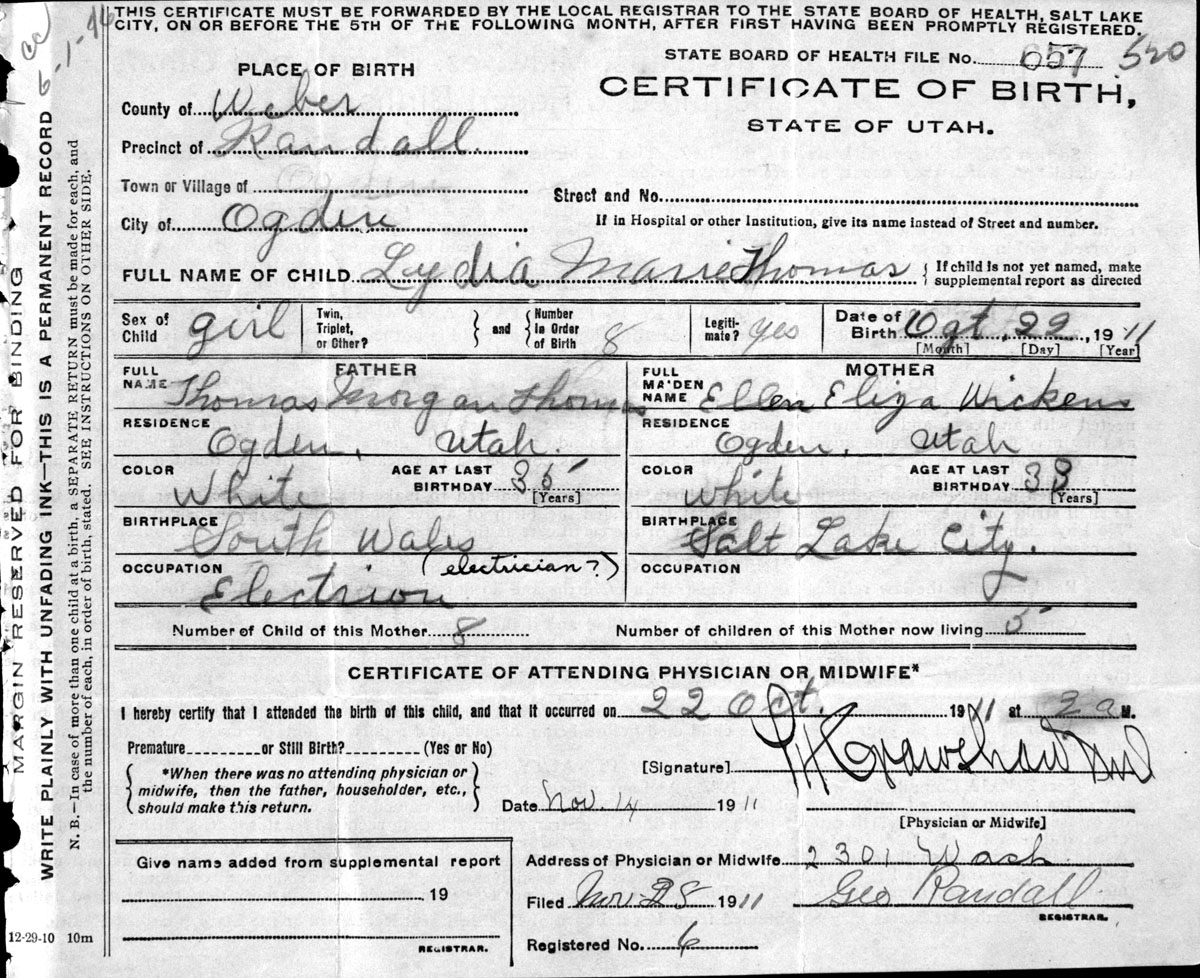 THIS CERTIFICATE MUST BE FORWARDED BY THE LOCAL REGISTRAR TO THE STATE BOARD OF HEALTH, SALT LAKE
CITY, ON OR BEFORE THE 5TH OF THE FOLLOWING MONTH, AFTER FIRST HAVING BEEN PROMPTLY REGISTERED.
STATE BOARD OF HEALTH FILE No. 657 520
PLACE OF BIRTH
CERTIFICATE OF BIRTH,
STATE OF UTAH.
County of Weber
Precinct of Randall
Town or Village of
Street and No.
City of Ogden
If in Hospital or other Institution, give its name instead of Street and number.
FULL NAME OF CHILD Lydia Marie Thomas { If child is not yet named, make
supplemental report as directed
Sex of Child girl
Twin, Triplet, or Other? } and { Number in Order of Birth 8
Legiti-mate? yes
Date of Birth Oct, 22, 1911
[Month] [Day] [Year]
FATHER
FULL NAME Thomas Morgan Thomas
MOTHER
FULL MAIDEN NAME Ellen Eliza Wickens
RESIDENCE Ogden, Utah.
RESIDENCE Ogden, Utah
COLOR White AGE AT LAST BIRTHDAY 35 [Years]
COLOR White AGE AT LAST BIRTHDAY 33 [Years]
BIRTHPLACE South Wales
BIRTHPLACE Salt Lake City.
OCCUPATION Electrion (electrician?)
OCCUPATION
Number of Child of this Mother 8 Number of children of this Mother now living 5
CERTIFICATE OF ATTENDING PHYSICIAN OR MIDWIFE*
I hereby certify that I attended the birth of this child, and that it occurred on 22 Oct. 1911 at 2 a M.
Premature or Still Birth? (Yes or No)
{ *When there was no attending physician or
midwife, then the father, householder, etc.,
should make this return. }
[Signature]
Date Nov. 14 1911
[Physician or Midwife]
Give name added from supplemental report
19
REGISTRAR.
Address of Physician or Midwife 2301 Wash
Filed Nov. 28 1911 Geo Randall
REGISTRAR.
Registered No. 6
12-29-10 10m
MARGIN RESERVED FOR BINDING
WRITE PLAINLY WITH UNFADING INK—THIS IS A PERMANENT RECORD
N. B.—In case of more than one child at a birth, a SEPARATE RETURN must be made for each, and
the number of each, in order of birth, stated. SEE INSTRUCTIONS ON OTHER SIDE.